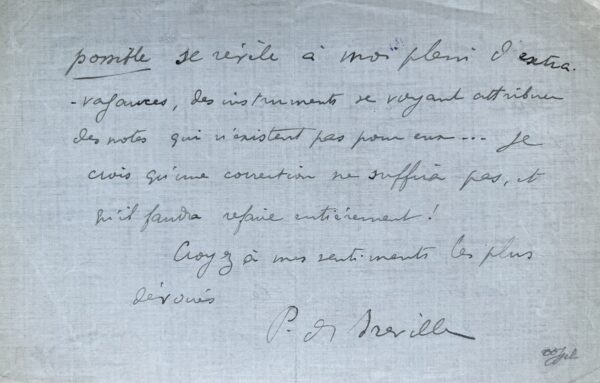 possible se révèle à moi plein d'extra-
-vagances, des instruments se voyant attribuer
des notes qui n'existent pas pour eux... Je
crois qu'une correction ne suffira pas, et
qu'il faudra refaire entièrement!
Croyez à mes sentiments les plus
dévoués
P. de Breville